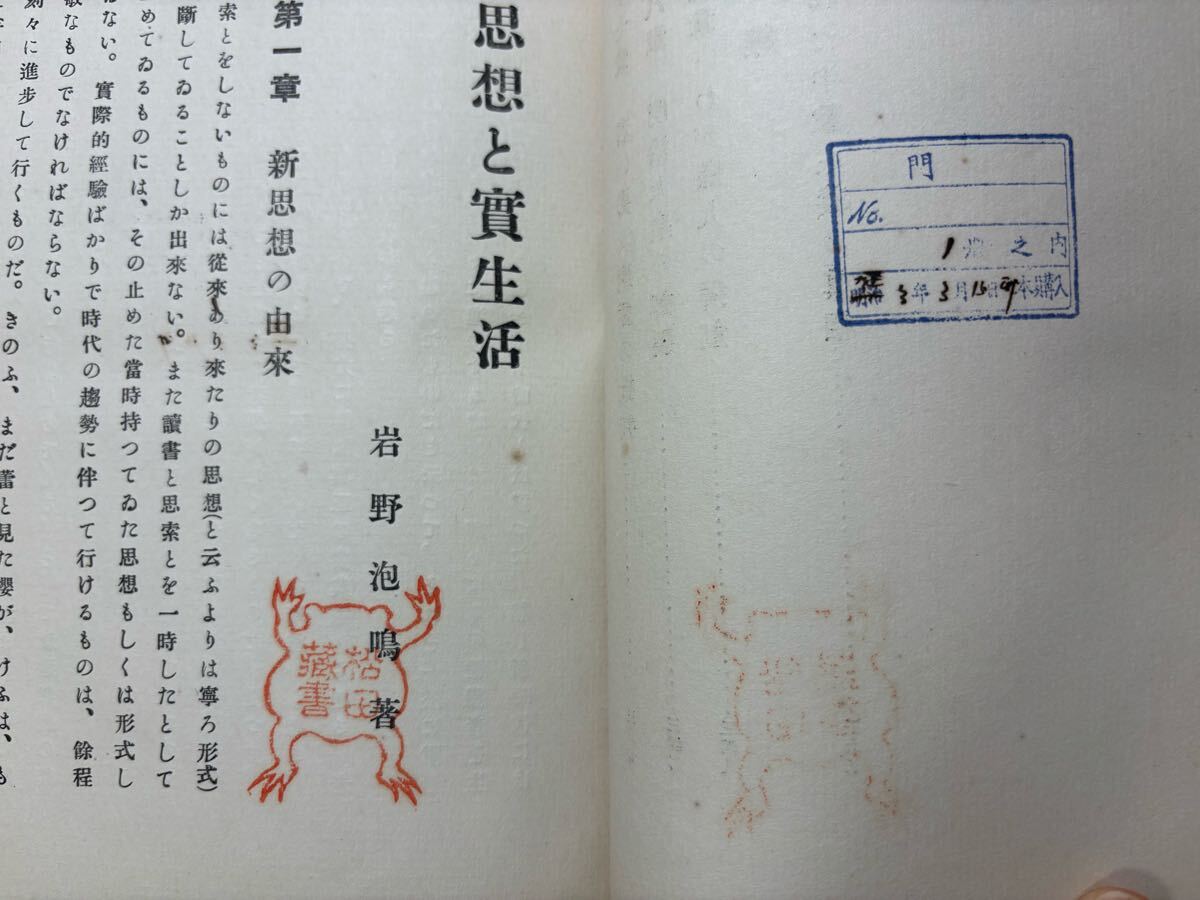 門
No.
1 冊之内
3年3月15日 本購入
思想と實生活
岩野泡鳴著
柗田
藏書
第一章　新思想の由來
索とをしないものには從來あり來たりの思想(と云ふよりは寧ろ形式)
斷してゐることしか出來ない。また讀書と思索とを一時したとして
めてゐるものには、その止めた當時持つてゐた思想もしくは形式し
ない。實際的經驗ばかりで時代の趨勢に伴つて行けるものは、餘程
敏なものでなければならない。
刻々に進步して行くものだ。きのふ、まだ蕾と見た櫻が、けふは、も